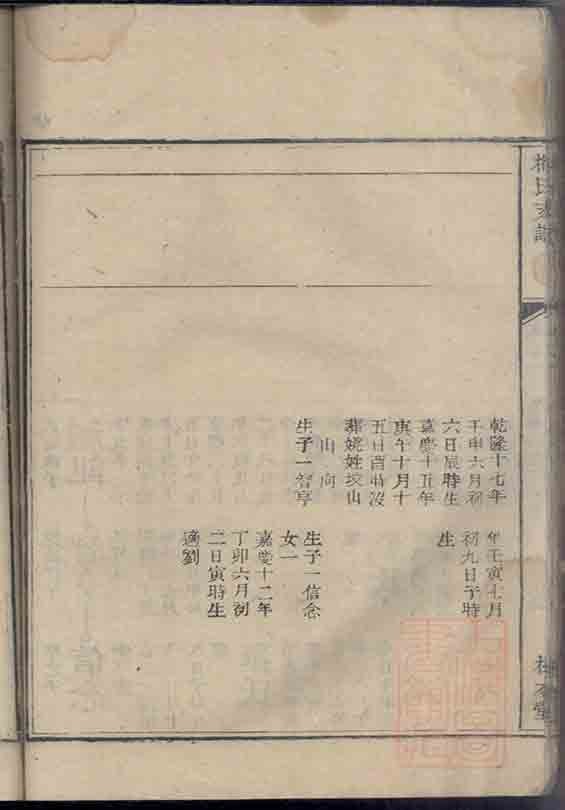 乾隆十七年
壬申六月初
六日辰時生
嘉慶十五年
庚午十月十
五日酉時沒
葬姚姓坟山
山向
生子一智享
年壬寅七月
初九日子時
生
生子一信念
女一
嘉慶十二年
丁卯六月初
二日寅時生
適劉